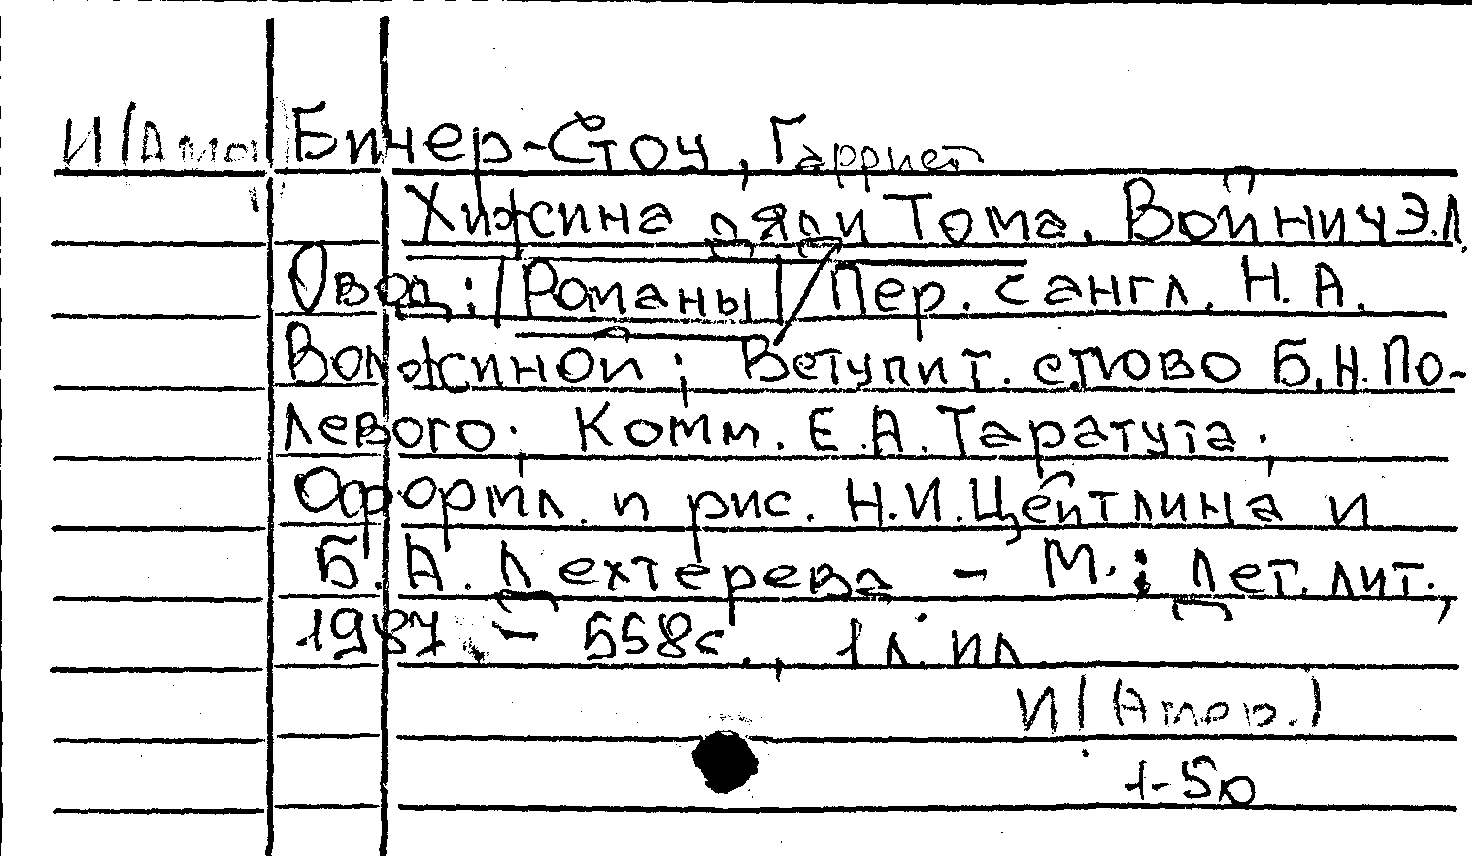 И(Амо) Бичер-Стоу, Гарриет
Хижина дяди Тома. Войнич Э.Л.
Овод: /Романы/ Пер. с англ. Н. А.
Волжиной; Вступит. слово Б.Н. По-
левого; Комм. Е.А. Таратута;
Оформл. и рис. Н.И. Цейтлина и
Б. А. Дехтерева - М.: Дет. лит.,
1987. - 558с., 1 л. ил
И(Амер.)
1-50